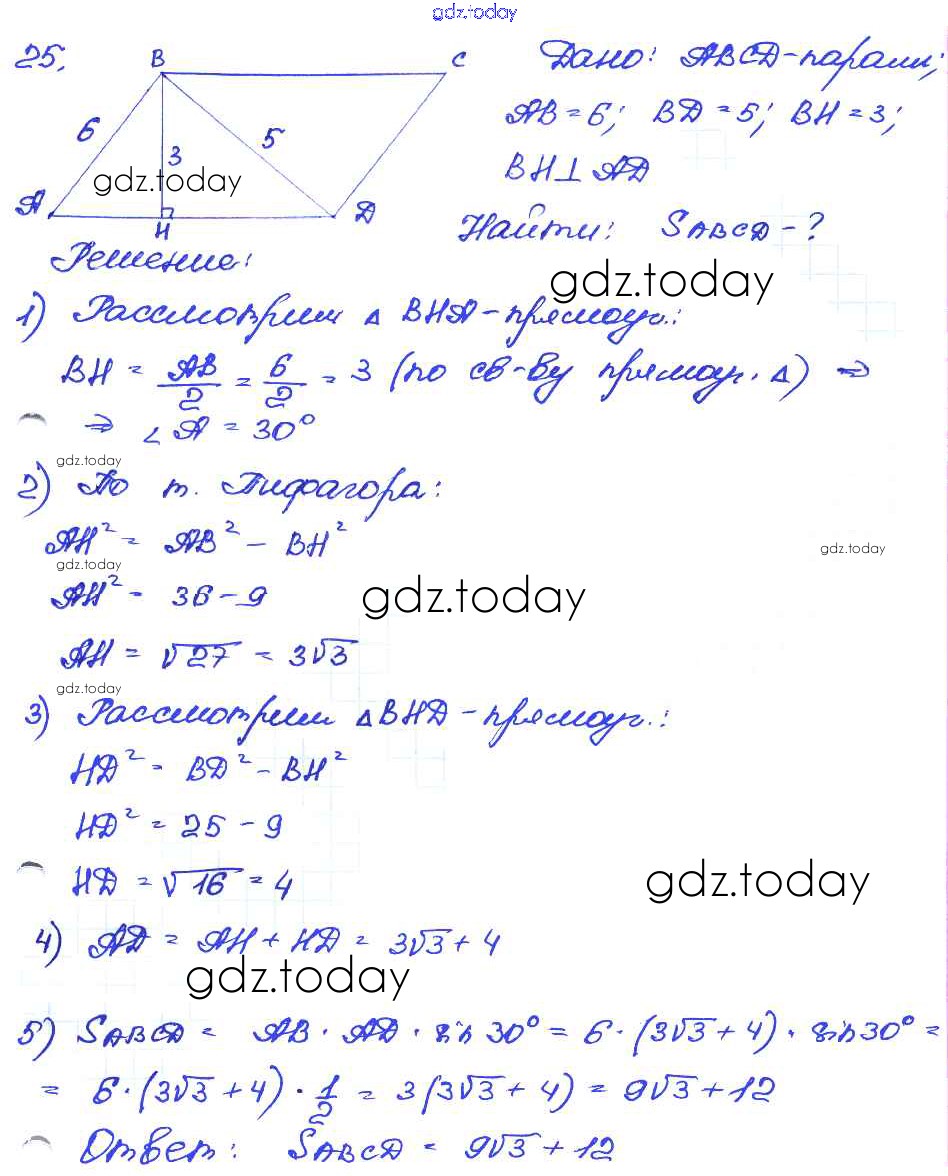 gdz.today
25.
B
C
Дано: ABCD-парали;
6
5
AB = 6; BD = 5; BH = 3;
3
gdz.today
BH ⊥ AD
A
H
D
Найти: SABCD - ?
Решение:
gdz.today
1) Рассмотрим △ BHA - прямоуг.:
BH = AB/2 = 6/2 = 3 (по св-ву прямоуг. △) ⇒
⇒ ∠A = 30°
gdz.today
2) По т. Пифагора:
AH² = AB² - BH²
gdz.today
gdz.today
AH² = 36 - 9
gdz.today
AH = √27 = 3√3
gdz.today
3) Рассмотрим △BHD - прямоуг.:
HD² = BD² - BH²
HD² = 25 - 9
HD = √16 = 4
gdz.today
4) AD = AH + HD = 3√3 + 4
gdz.today
5) SABCD = AB · AD · sin 30° = 6 · (3√3 + 4) · sin 30° =
= 6 · (3√3 + 4) · 1/2 = 3(3√3 + 4) = 9√3 + 12
Ответ: SABCD = 9√3 + 12